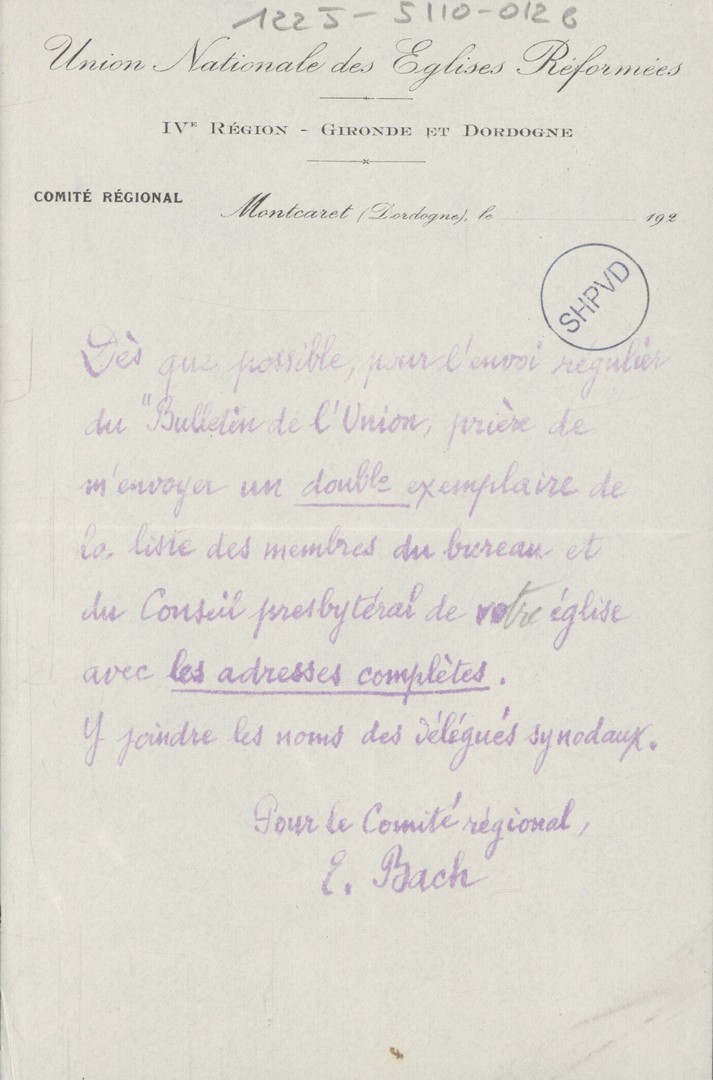 1225-5110-0126
Union Nationale des Eglises Réformées
IVE RÉGION - GIRONDE ET DORDOGNE
COMITÉ RÉGIONAL
Montcaret (Dordogne), le 192
SHPVD
Dès que possible, pour l'envoi régulier
du "Bulletin de l'Union, prière de
m'envoyer un double exemplaire de
la liste des membres du bureau et
du Conseil presbytéral de votre église
avec les adresses complètes.
Y joindre les noms des délégués synodaux.
Pour le Comité régional,
E. Bach